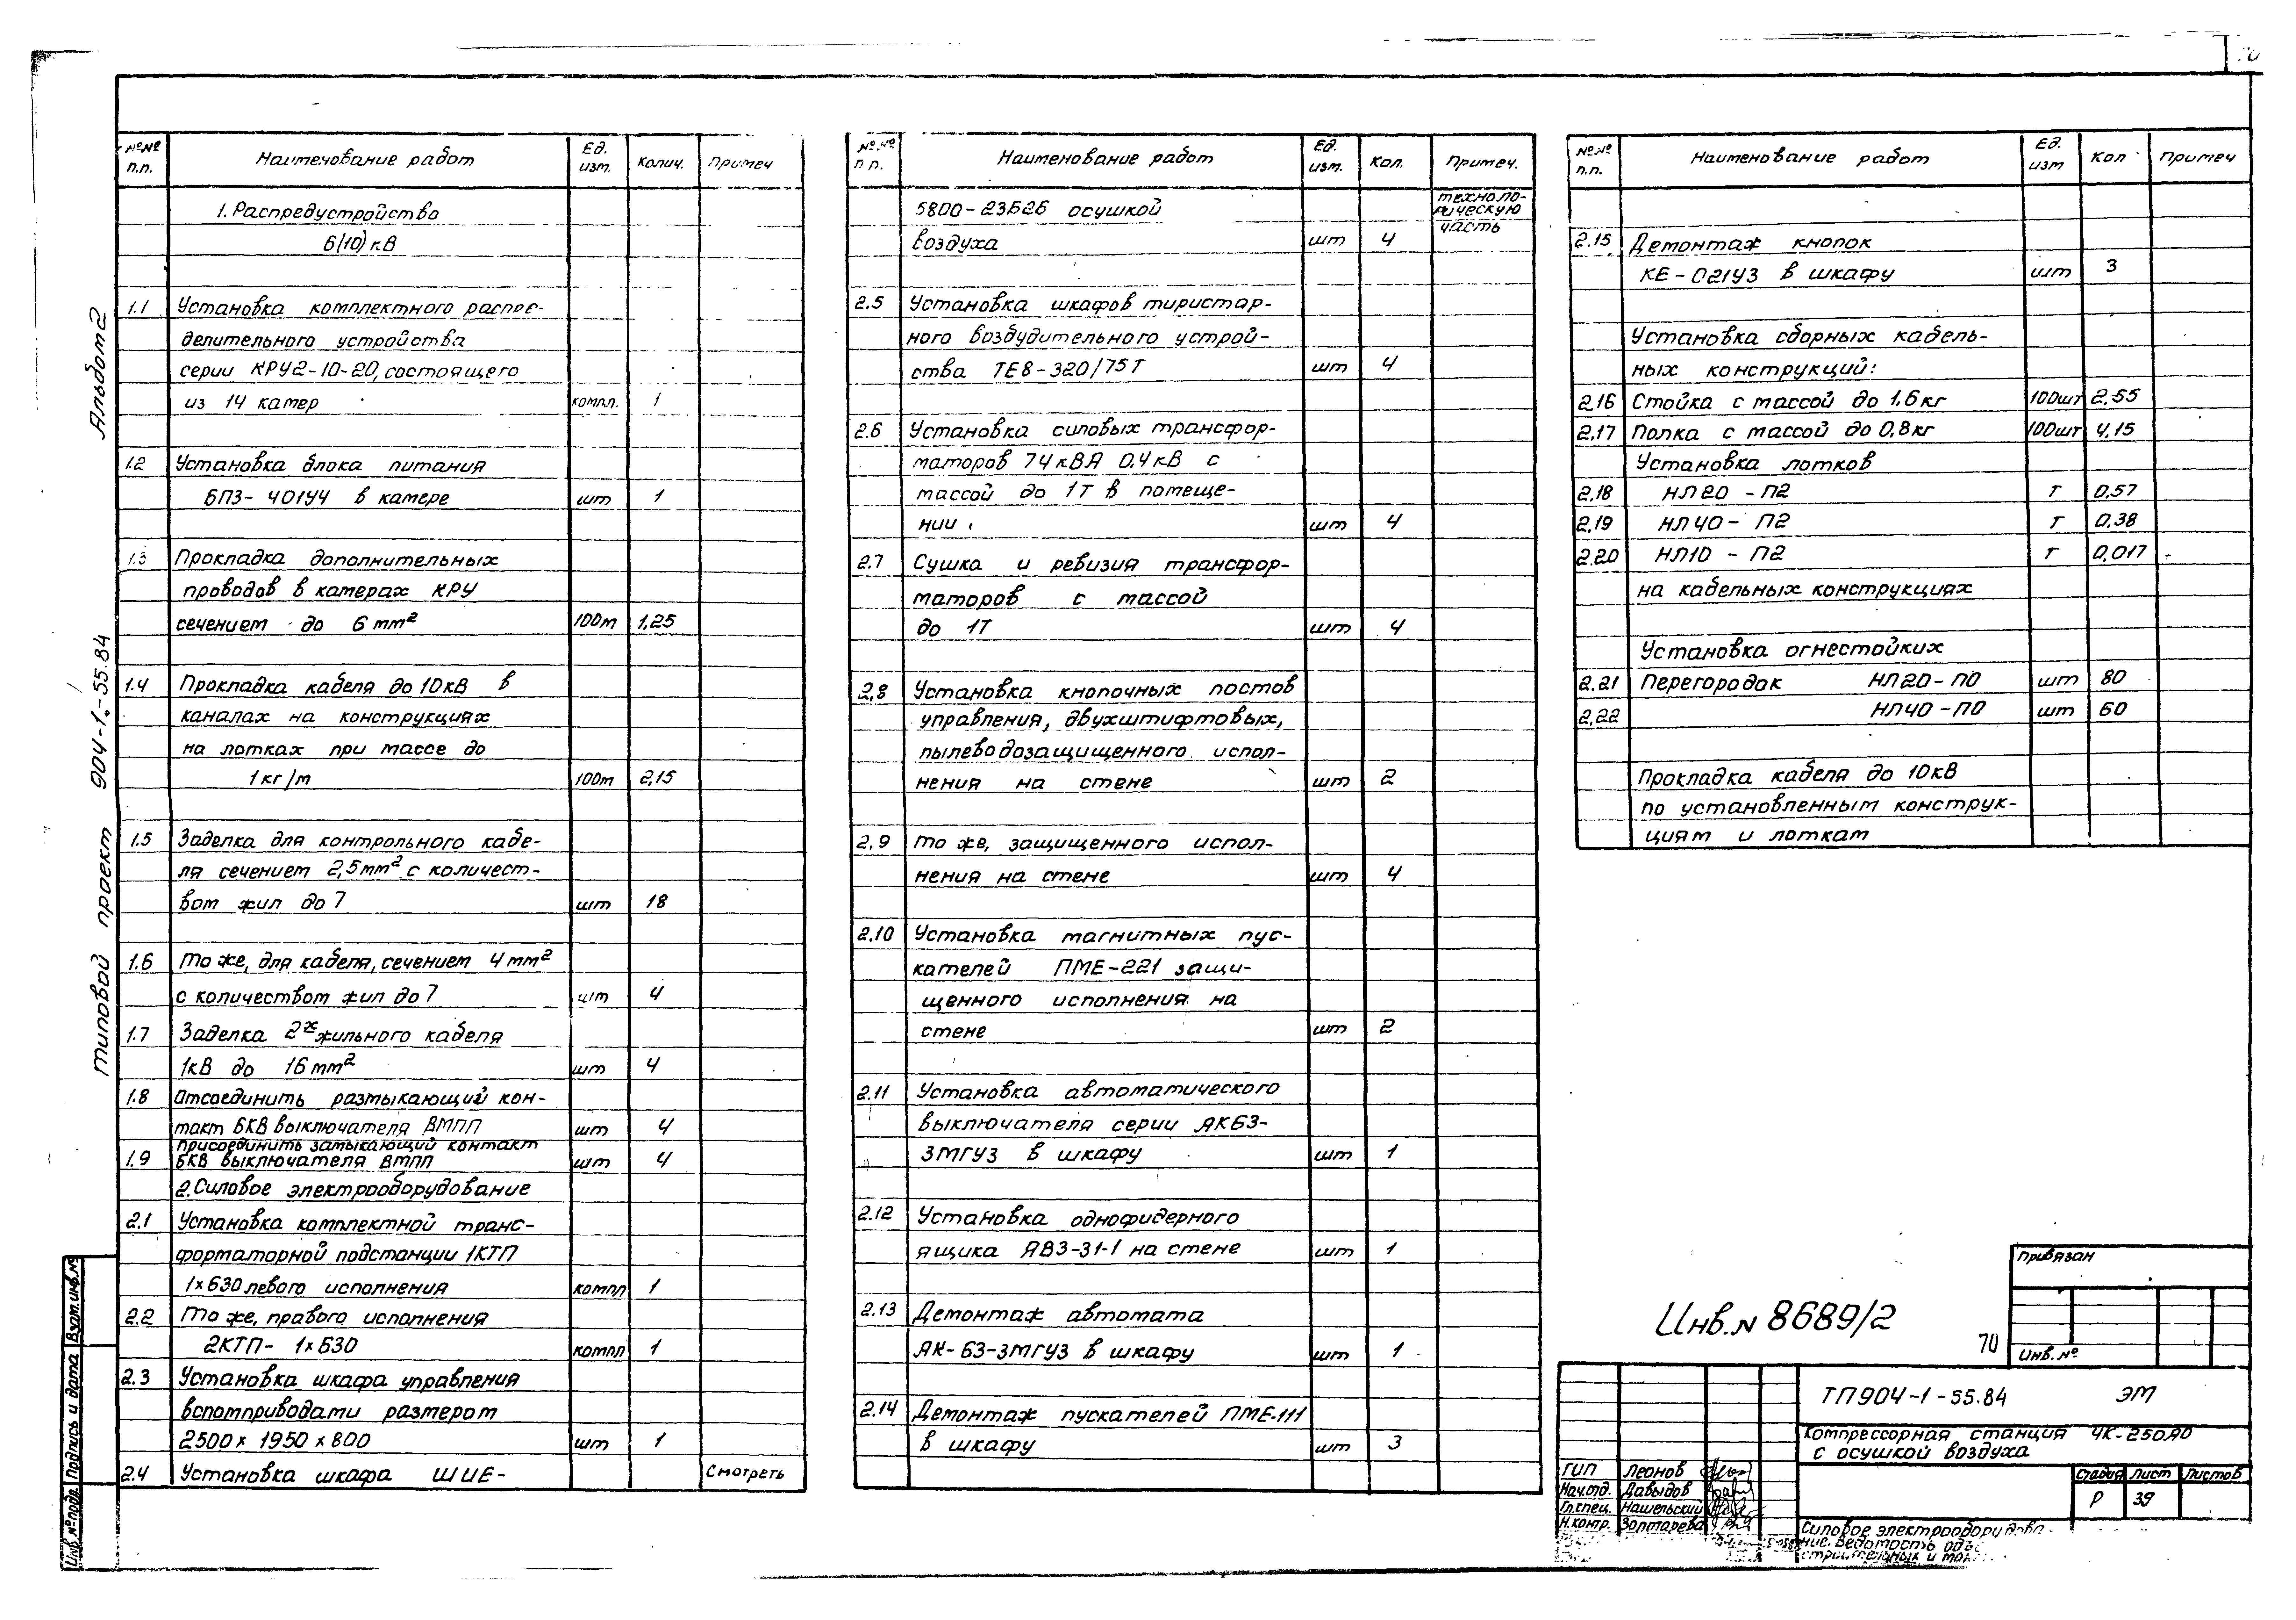 70
Альбом 2
Типовой проект 904-1-55.84
№№ п.п. Наименование работ Ед. изм. Колич. Примеч
1. Распредустройство
6(10) кВ
1.1 Установка комплектного распре-
делительного устройства
серии КРУ2-10-20, состоящего
из 14 камер компл. 1
1.2 Установка блока питания
БПЗ-401У4 в камере шт 1
1.3 Прокладка дополнительных
проводов в камерах КРУ
сечением до 6 мм² 100м 1,25
1.4 Прокладка кабеля до 10кВ в
каналах на конструкциях
на лотках при массе до
1 кг/м 100м 2,15
1.5 Заделка для контрольного кабе-
ля сечением 2,5 мм² с количест-
вом жил до 7 шт 18
1.6 То же, для кабеля, сечением 4 мм²
с количеством жил до 7 шт 4
1.7 Заделка 2х жильного кабеля
1кВ до 16 мм² шт 4
1.8 Отсоединить размыкающий кон-
такт БКВ выключателя ВМПП шт 4
присоединить замыкающий контакт
1.9 БКВ выключателя ВМПП шт 4
2. Силовое электрооборудование
2.1 Установка комплектной транс-
форматорной подстанции 1КТП
1×630 левого исполнения компл 1
2.2 То же, правого исполнения
2КТП- 1×630 компл 1
2.3 Установка шкафа управления
вспомприводами размером
2500 × 1950 × 800 шт 1
2.4 Установка шкафа ШИЕ- Смотреть
№№ п п. Наименование работ Ед. изм. Кол. Примеч.
5800-23Б2Б осушкой техноло-
гическую
воздуха шт 4 часть
2.5 Установка шкафов тиристар-
ного возбудительного устрой-
ства ТЕ8-320/75Т шт 4
2.6 Установка силовых трансфор-
маторов 74 кВА 0,4 кВ с
массой до 1Т в помеще-
нии шт 4
2.7 Сушка и ревизия трансфор-
маторов с массой
до 1Т шт 4
2.8 Установка кнопочных постов
управления, двухштифтовых,
пылеводозащищенного испол-
нения на стене шт 2
2.9 То же, защищенного испол-
нения на стене шт 4
2.10 Установка магнитных пус-
кателей ПМЕ-221 защи-
щенного исполнения на
стене шт 2
2.11 Установка автоматического
выключателя серии АК63-
3МГУЗ в шкафу шт 1
2.12 Установка однофидерного
ящика ЯВЗ-31-1 на стене шт 1
2.13 Демонтаж автомата
АК-63-3МГУЗ в шкафу шт 1
2.14 Демонтаж пускателей ПМЕ-111
в шкафу шт 3
№№ п.п. Наименование работ Ед. изм Кол Примеч
2.15 Демонтаж кнопок
КЕ-021У3 в шкафу шт 3
Установка сборных кабель-
ных конструкций:
2.16 Стойка с массой до 1,6 кг 100шт 2,55
2.17 Полка с массой до 0,8 кг 100шт 4,15
Установка лотков
2.18 НЛ20 - П2 т 0,57
2.19 НЛ40 - П2 т 0,38
2.20 НЛ10 - П2 т 0,017
на кабельных конструкциях
Установка огнестойких
2.21 Перегородок НЛ20-П0 шт 80
2.22 НЛ40-П0 шт 60
Прокладка кабеля до 10кВ
по установленным конструк-
циям и лоткам
Инв. N 8689/2
70
Привязан
Инв. №
ТП904-1-55.84 ЭМ
Компрессорная станция 4К-250А0
с осушкой воздуха
Стадия Лист Листов
Р 39
ГИП Леонов
Нач.отд. Давыдов
Гл.спец. Нашельский
Н.контр. Золтарева
Силовое электрооборудова-
ние. Ведомость
строительных и
Инв.№подл. Подпись и дата Взам.инв.№